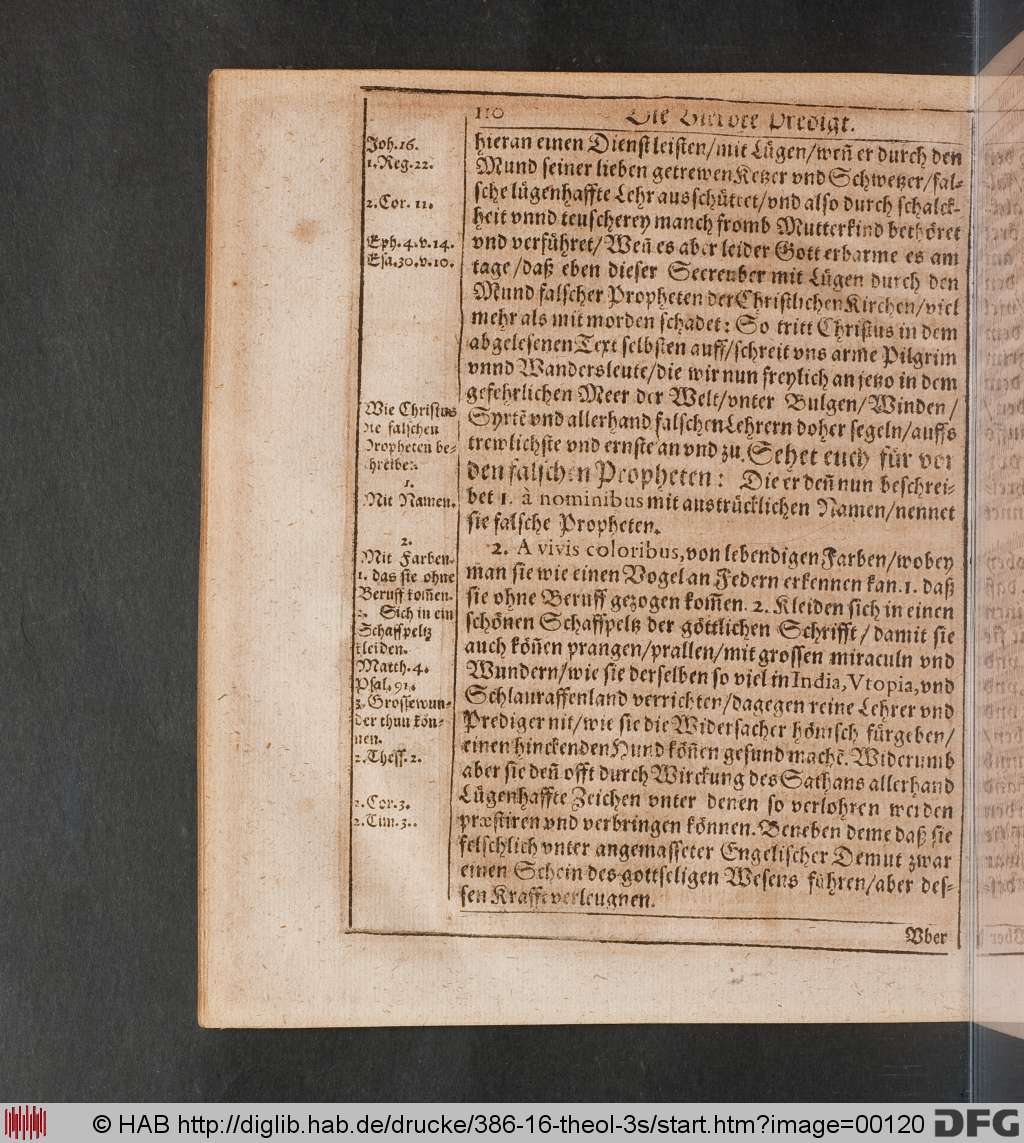 110 Die Vierdte Predigt.
Joh. 16.
1. Reg. 22.
2. Cor. 11.
Eph. 4. v. 14.
Esa. 30. v. 10.
Wie Christus
die falschen
Propheten be-
schreibet.
1.
Mit Namen.
2.
Mit Farben.
1. das sie ohne
Beruff kom̃en.
2. Sich in ein
Schaffpeltz
kleiden.
Matth. 4.
Psal. 91.
3. Grosse wun-
der thun kön-
nen.
2. Thess. 2.
2. Cor. 3.
2. Tim. 3.
hieran einen Dienst leisten/mit Lügen/wen̄ er durch den
Mund seiner lieben getrewen Ketzer vnd Schwetzer/fal-
sche lügenhaffte Lehr ausschüttet/vnd also durch schalck-
heit vnnd teuscherey manch fromb Mutterkind bethöret
vnd verführet/Wen̄ es aber leider Gott erbarme es am
tage/daß eben dieser Seereuber mit Lügen durch den
Mund falscher Propheten der Christlichen Kirchen/viel
mehr als mit morden schadet: So tritt Christus in dem
abgelesenen Text selbsten auff/schreit vns arme Pilgrim
vnnd Wandersleute/die wir nun freylich an jetzo in dem
gefehrlichen Meer der Welt/vnter Bulgen/Winden/
Syrtē vnd allerhand falschen Lehrern doher segeln/auffs
trewlichste vnd ernste an vnd zu. Sehet euch für vor
den falschen Propheten: Die er den̄ nun beschrei-
bet 1. à nominibus mit austrücklichen Namen/nennet
sie falsche Propheten.
2. A vivis coloribus, von lebendigen Farben/wobey
man sie wie einen Vogel an Federn erkennen kan. 1. daß
sie ohne Beruff gezogen kom̃en. 2. Kleiden sich in einen
schönen Schaffpeltz der göttlichen Schrifft/damit sie
auch kön̄en prangen/prallen/mit grossen miraculn vnd
Wundern/wie sie derselben so viel in India, Vtopia, vnd
Schlauraffenland verrichten/dagegen reine Lehrer vnd
Prediger nit/wie sie die Widersacher hönisch fürgeben/
einen hinckenden Hund kön̄en gesund machē. Widerumb
aber sie den̄ offt durch Wirckung des Sathans allerhand
Lügenhaffte Zeichen vnter denen so verlohren werden
præstiren vnd verbringen können. Beneben deme daß sie
felschlich vnter angemasseter Engelischer Demut zwar
einen Schein des gottseligen Wesens führen/aber des-
sen Krafft verleugnen.
Vber
© HAB http://diglib.hab.de/drucke/386-16-theol-3s/start.htm?image=00120 DFG